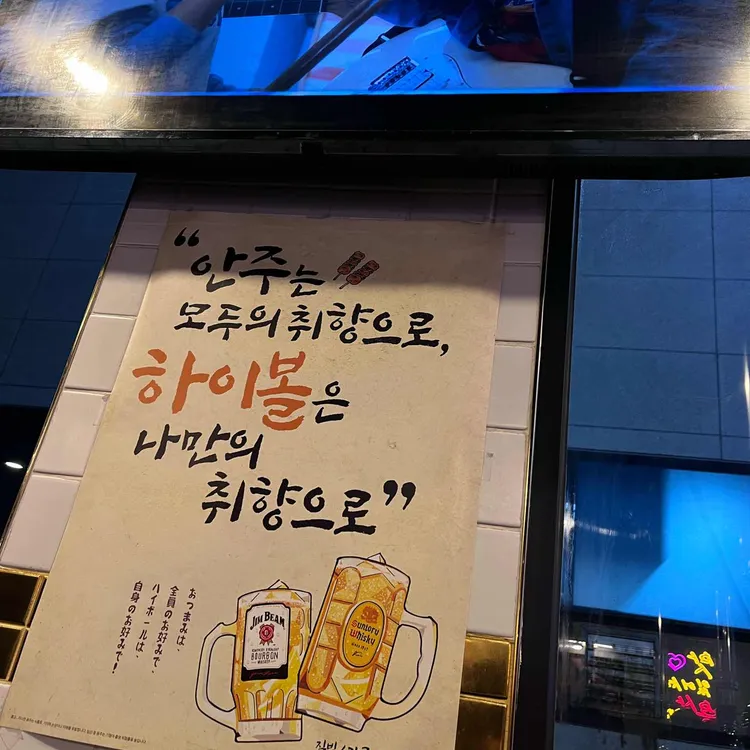 “안주는
모두의 취향으로,
하이볼은
나만의
취향으로”
おつまみは、
全員のお好みで
ハイボールは、
自身のお好みで！
JIM BEAM
KENTUCKY STRAIGHT
BOURBON
WHISKEY
SUNTORY
WHISKY